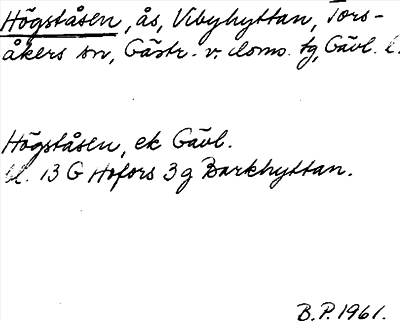 Högståsen, ås, Vibyhyttan, Tors-
åkers sn, Gästr. v. doms. tg, Gävl. l.
Högståsen, ek Gävl.
bl. 13 G Hofors 3 g Barkhyttan.
B.P. 1961.